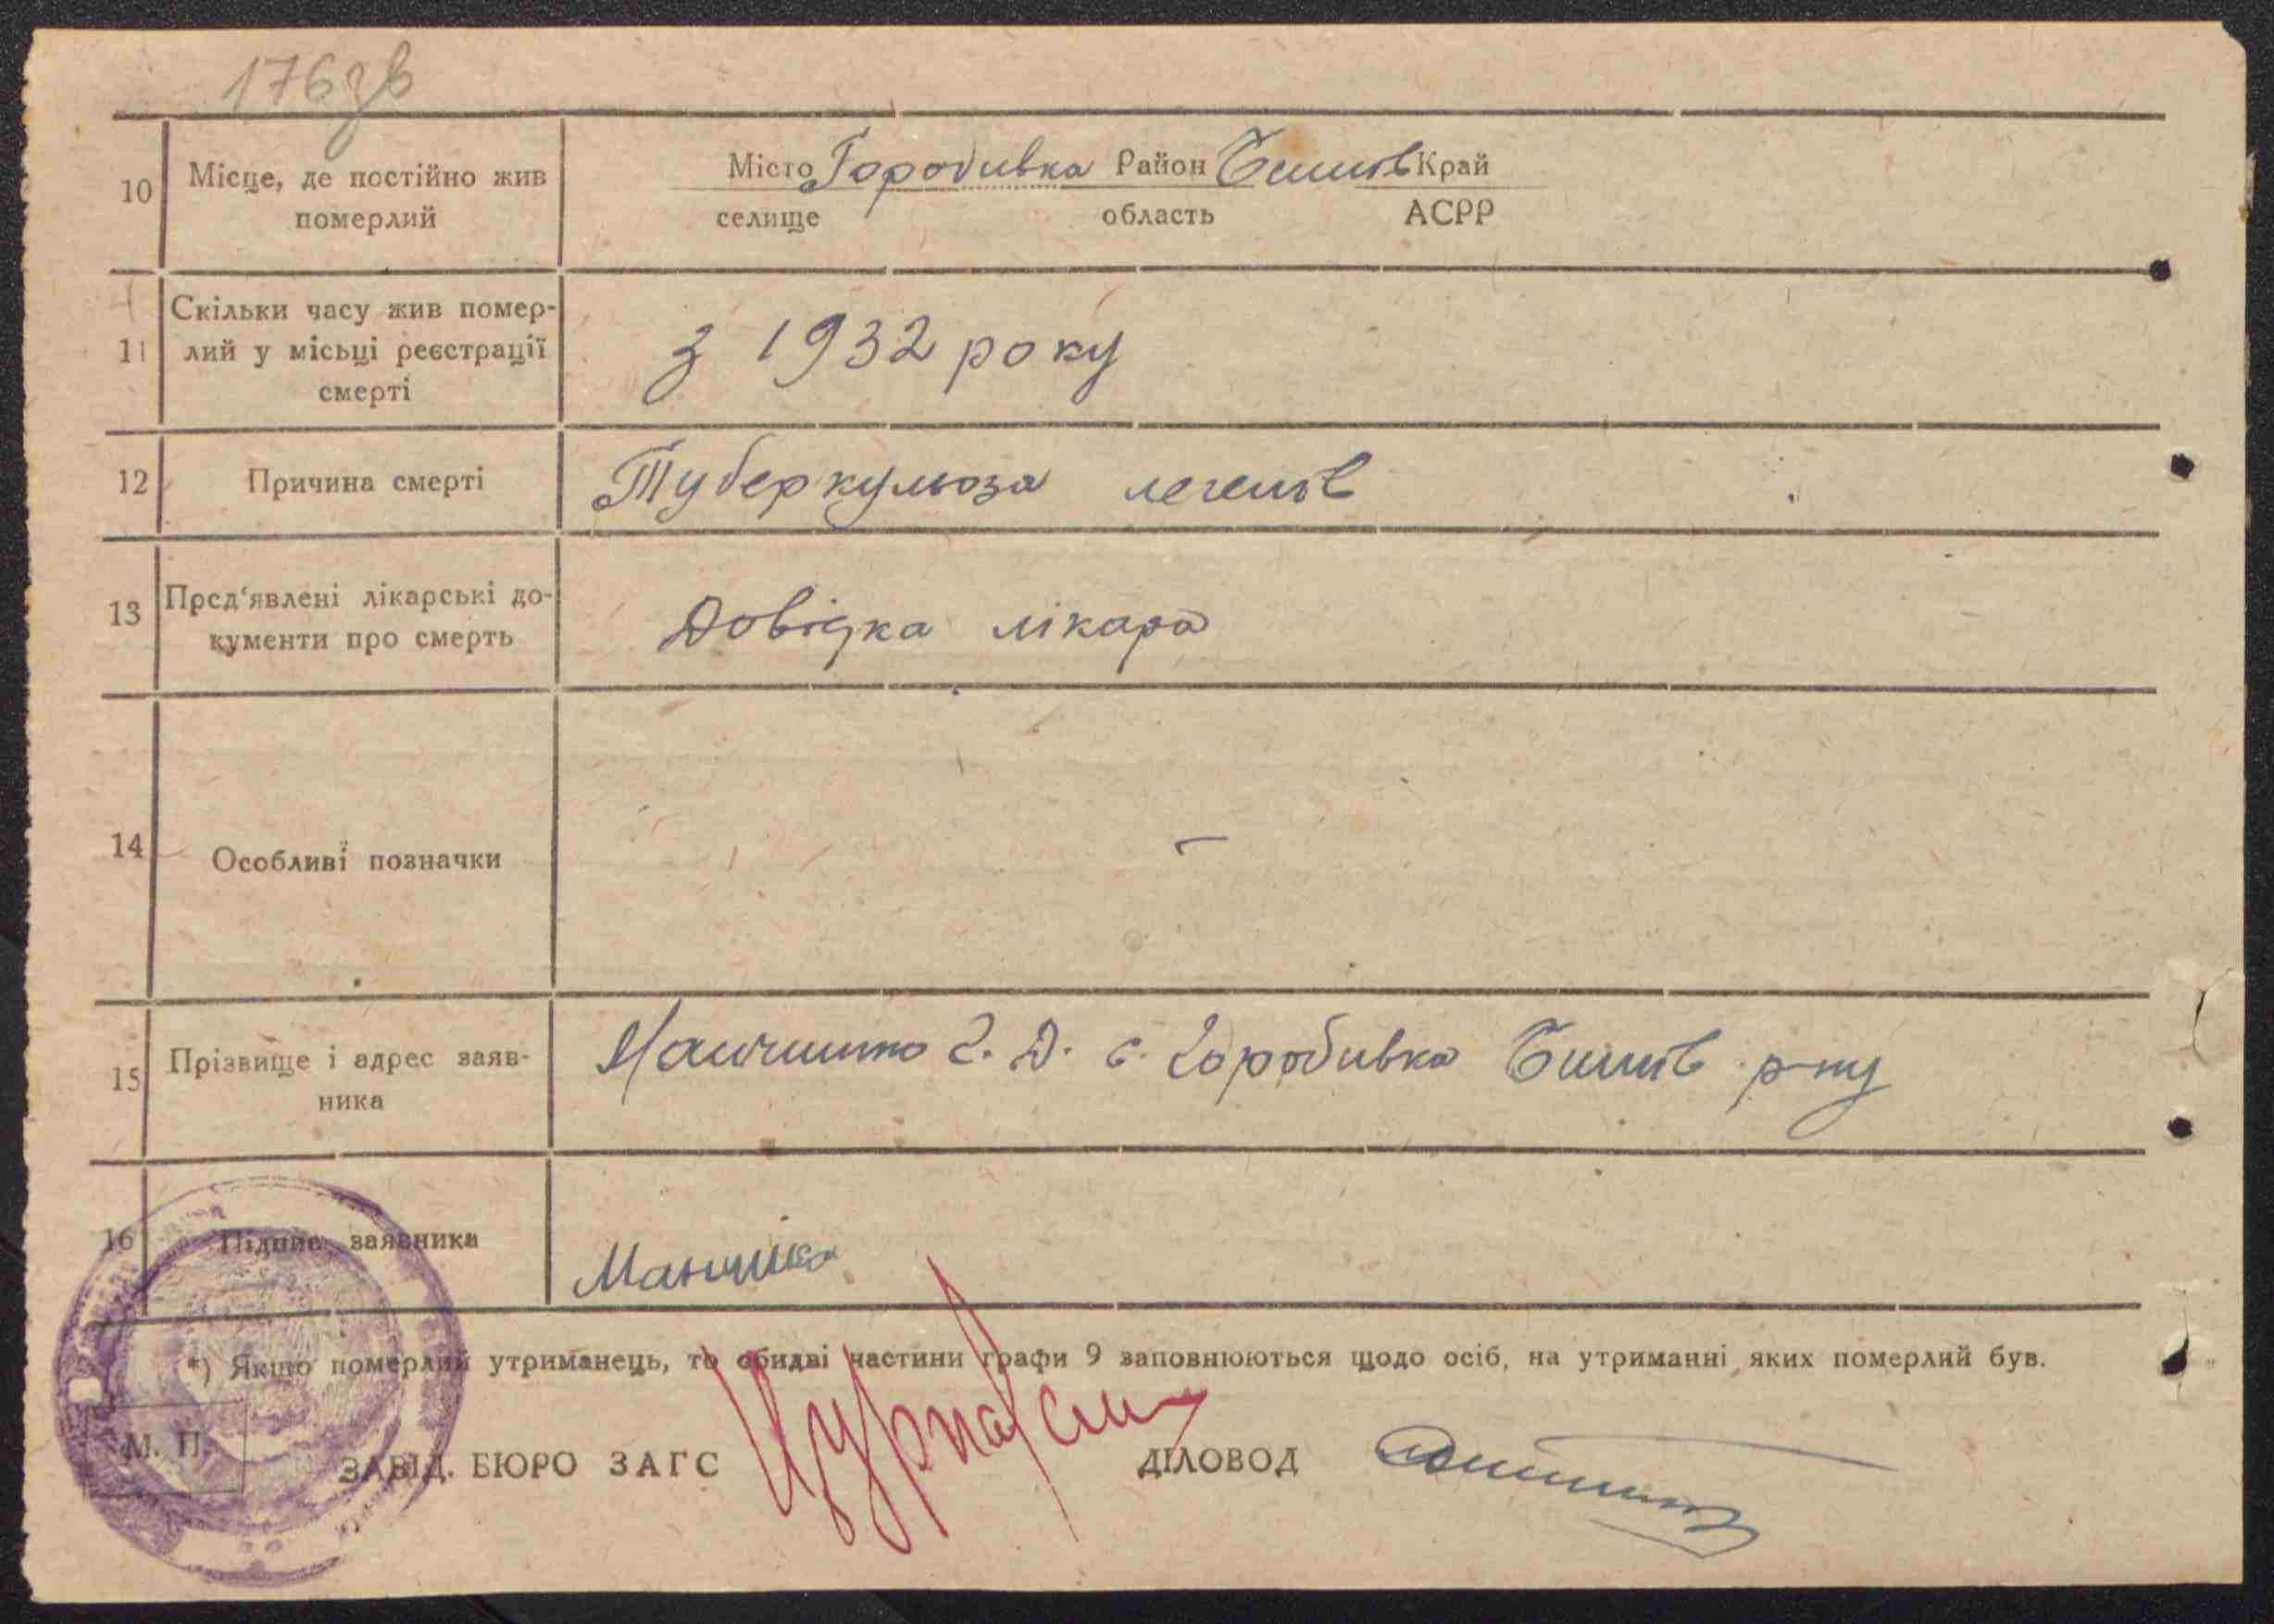 176зв
10 Місце, де постійно жив
померлий
Місто Горобивка Район Білоп Край
селище область АСРР
11 Скільки часу жив помер-
лий у місьці реєстрації
смерті
з 1932 року
12 Причина смерті
Туберкульоза легенів
13 Пред'явлені лікарські до-
кументи про смерть
Довідка лікара
14 Особливі позначки
–
15 Прізвище і адрес заяв-
ника
Г. Д. с. Горобивка р-ну
16 Підпис заявника
*) Якщо померлий утриманець, то обидві частини графи 9 заповнюються щодо осіб, на утриманні яких померлий був.
М. П.
ЗАВІД. БЮРО ЗАГС
ДІЛОВОД